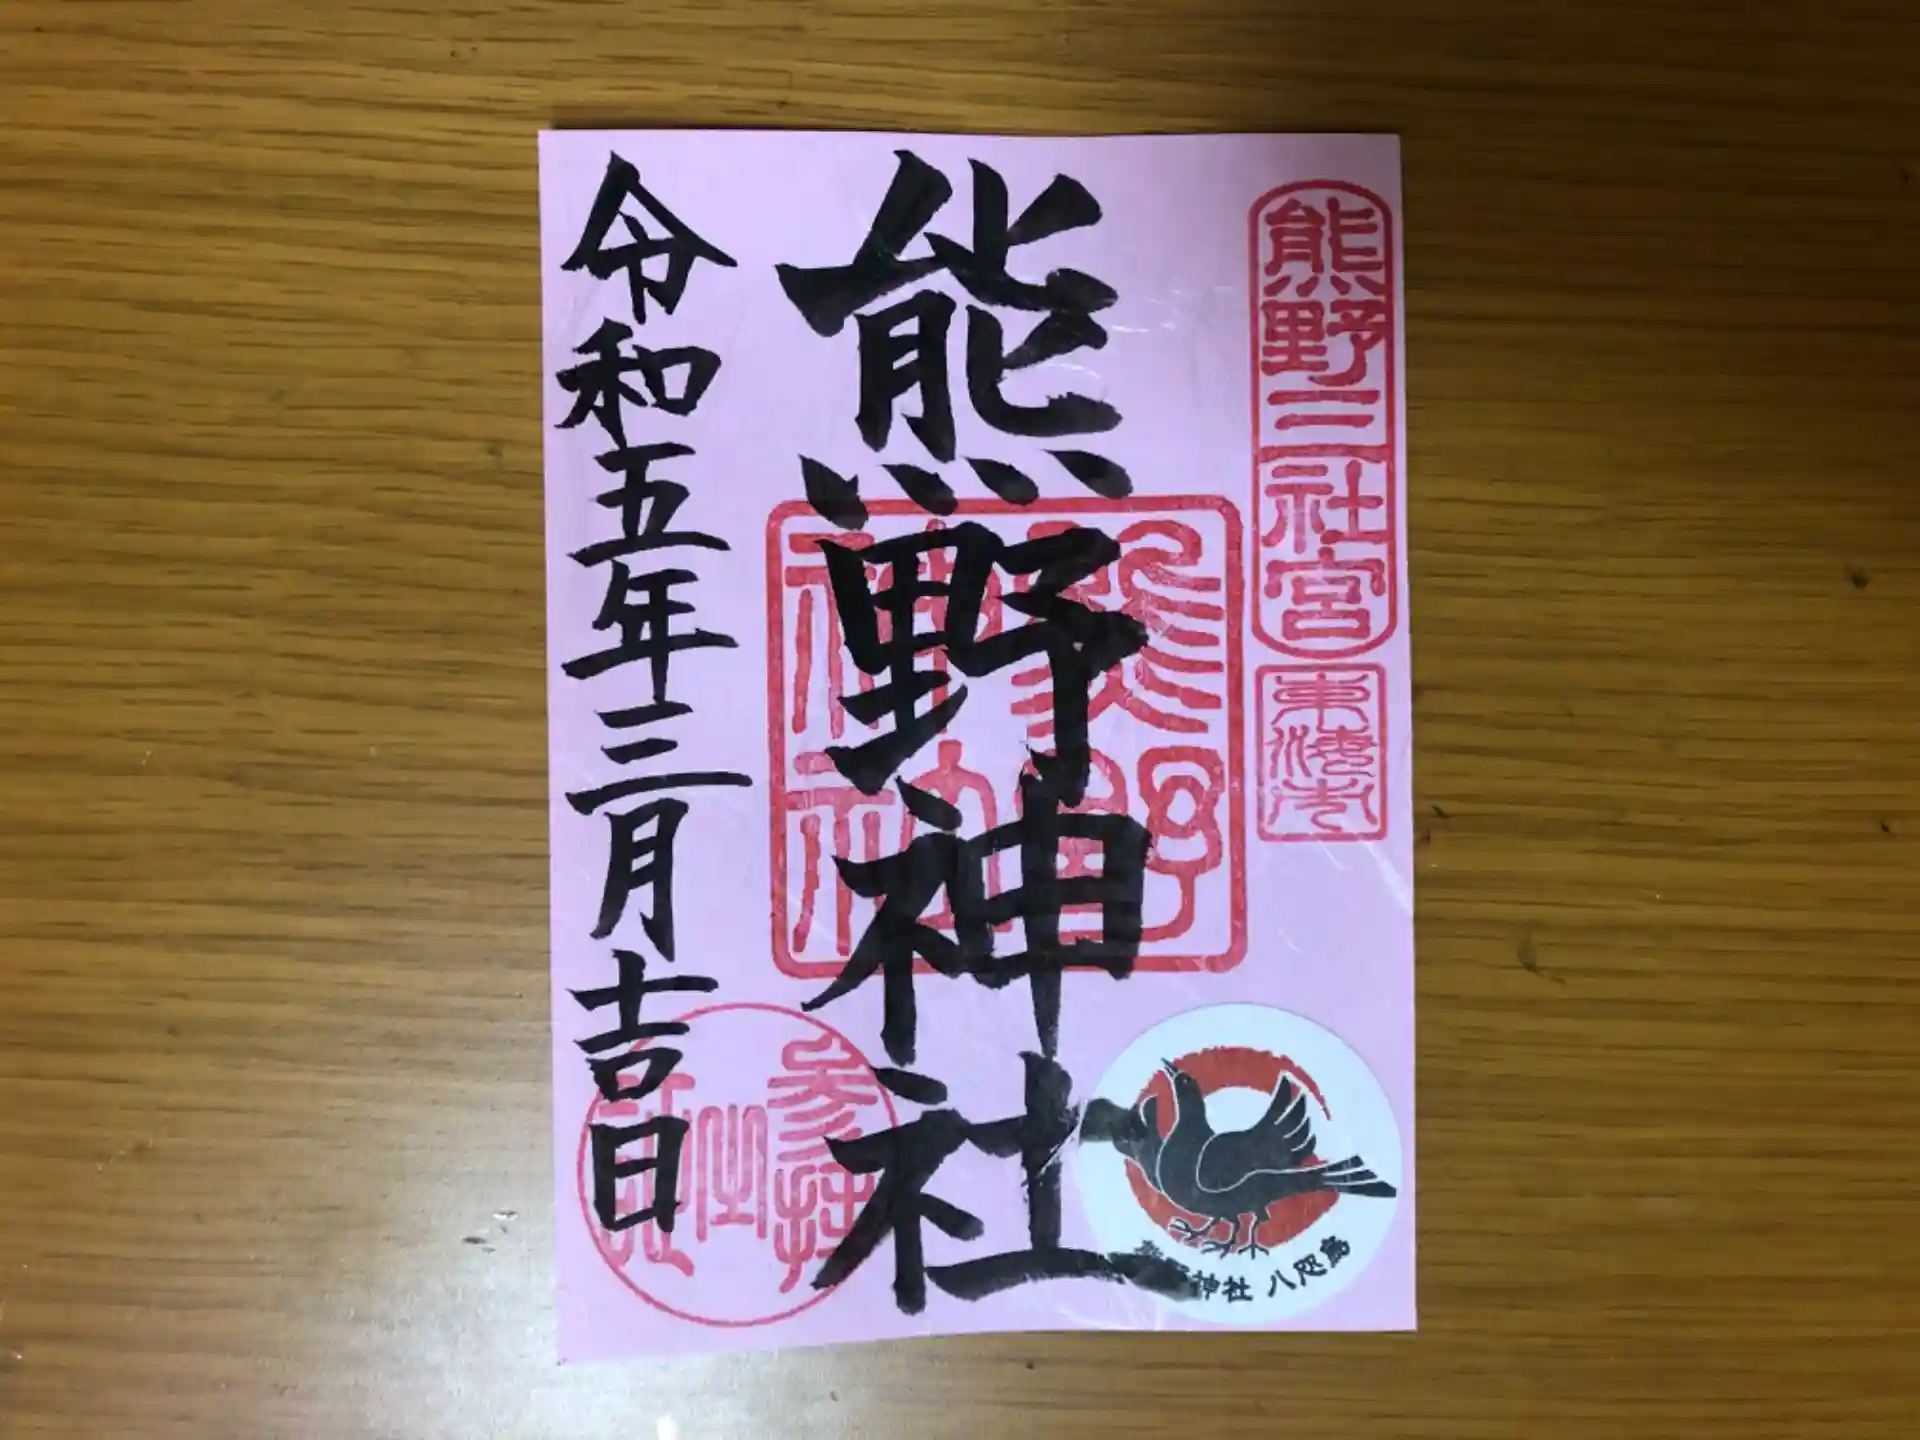 熊野三社宮
東海市
熊野神社
熊野神社
参拝
之
証
令和五年三月吉日
熊野神社 八咫烏